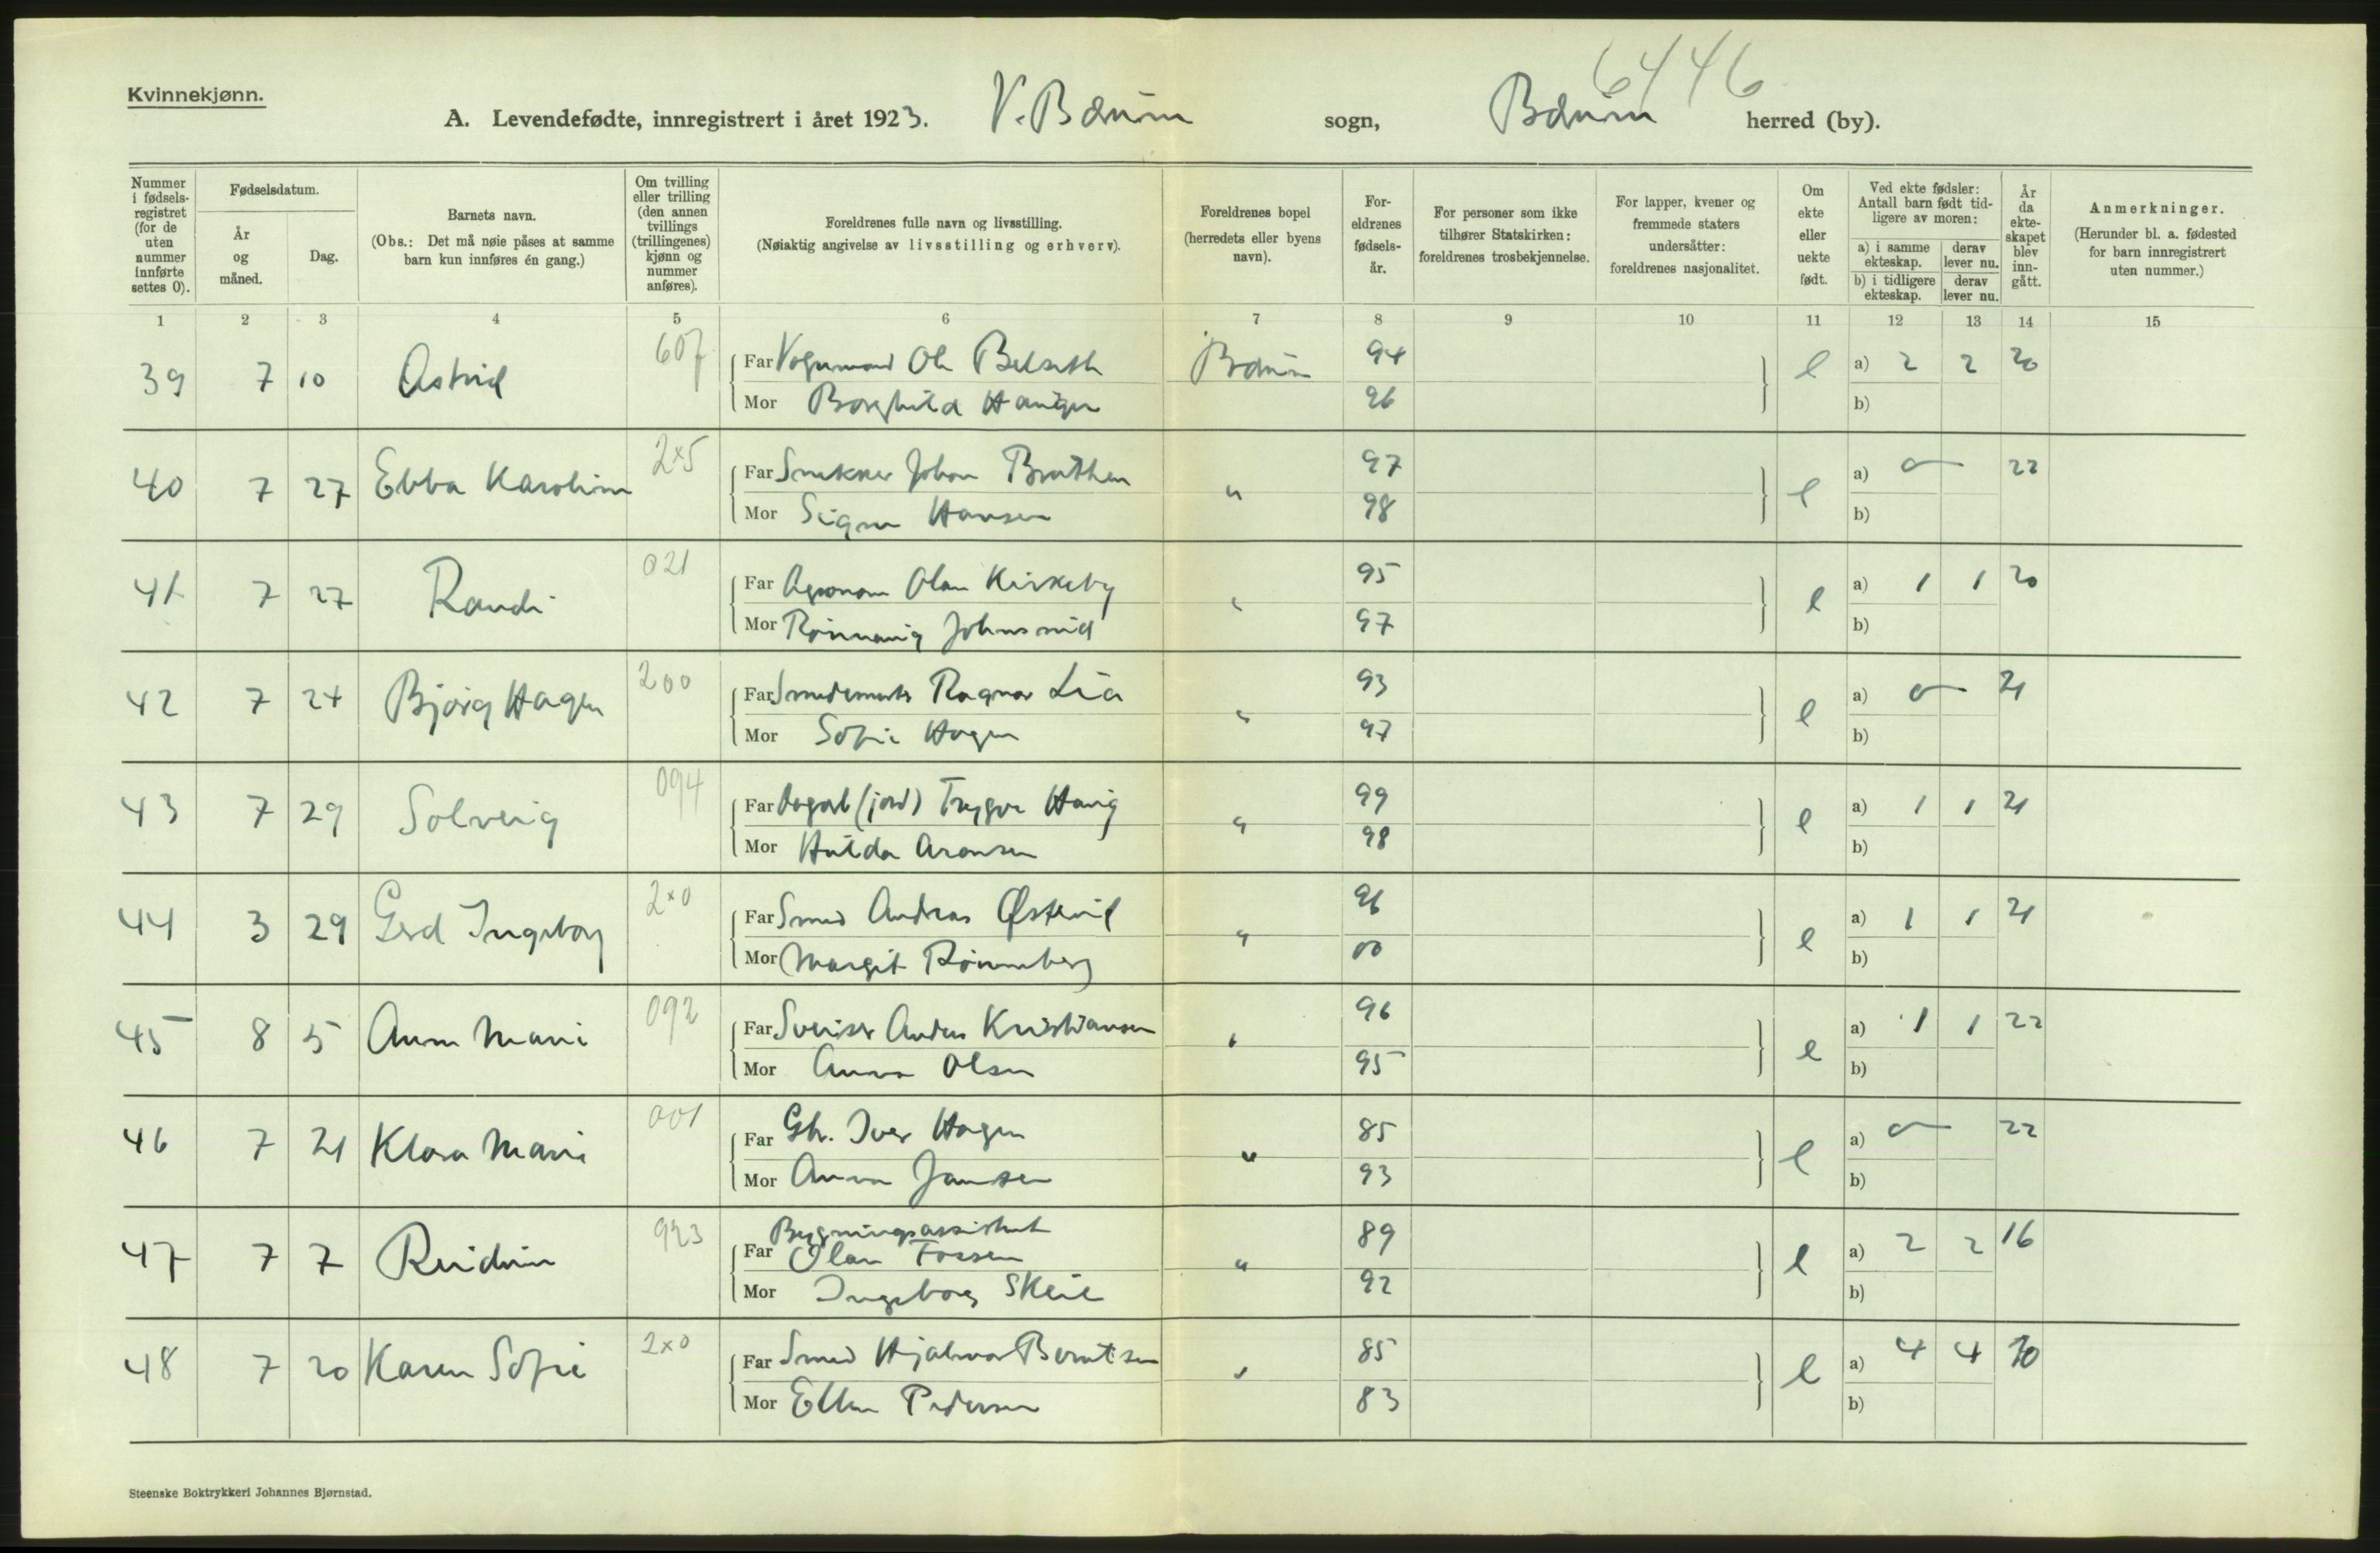 6446
Kvinnekjønn.
A. Levendefødte, innregistrert i året 1923. V. Bærum sogn, Bærum herred (by).
Nummer i fødselsregistret (for de uten nummer innførte settes 0).
Fødselsdatum.
År og måned.
Dag.
Barnets navn.
(Obs.: Det må nøie påses at samme barn kun innføres én gang.)
Om tvilling eller trilling (den annen tvillings (trillingenes) kjønn og nummer anføres).
Foreldrenes fulle navn og livsstilling.
(Nøiaktig angivelse av livsstilling og erhverv).
Foreldrenes bopel (herredets eller byens navn).
Foreldrenes fødselsår.
For personer som ikke tilhører Statskirken: foreldrenes trosbekjennelse.
For lapper, kvener og fremmede staters undersåtter: foreldrenes nasjonalitet.
Om ekte eller uekte født.
Ved ekte fødsler: Antall barn født tidligere av moren:
a) i samme ekteskap. derav lever nu.
b) i tidligere ekteskap. derav lever nu.
År da ekteskapet blev inngått.
Anmerkninger.
(Herunder bl. a. fødested for barn innregistrert uten nummer.)
1 2 3 4 5 6 7 8 9 10 11 12 13 14 15
39 7 10 Astrid 607 Far Vognmand Ole Belseth Bærum 94 e a) 2 2 20
Mor Borghild Haugen 96 b)
40 7 27 Ebba Karoline 2x5 Far Snekker Johan Bråthen " 97 e a) 0 22
Mor Signe Hansen 98 b)
41 7 27 Randi 021 Far Agronom Olav Kirkeby " 95 e a) 1 1 20
Mor Rønnaug Johnsrud 97 b)
42 7 24 Bjørg Hagen 200 Far Smedemester Ragnar Lia " 93 e a) 0 21
Mor Sofie Hagen 97 b)
43 7 29 Solveig 094 Far Dagarb (jord) Trygve Haug " 99 e a) 1 1 21
Mor Hulda Aronsen 98 b)
44 3 29 Gerd Ingeborg 2x0 Far Smed Andreas " 96 e a) 1 1 21
Mor Margit Rønneberg 00 b)
45 8 5 Anna Marie 092 Far Sveiser Anders Kristiansen " 96 e a) 1 1 22
Mor Anna Olsen 95 b)
46 7 21 Klara Marie 001 Far Gbr. Iver Hagen " 85 e a) 0 22
Mor Anna Jansen 93 b)
47 7 7 Reidun 923 Bygningsassistent
Far Olav Fossen " 89 e a) 2 2 16
Mor Ingeborg Skeie 92 b)
48 7 20 Karen Sofie 2x0 Far Smed Hjalmar Berntsen " 85 e a) 4 4 10
Mor Ellen Pedersen 83 b)
Steenske Boktrykkeri Johannes Bjørnstad.